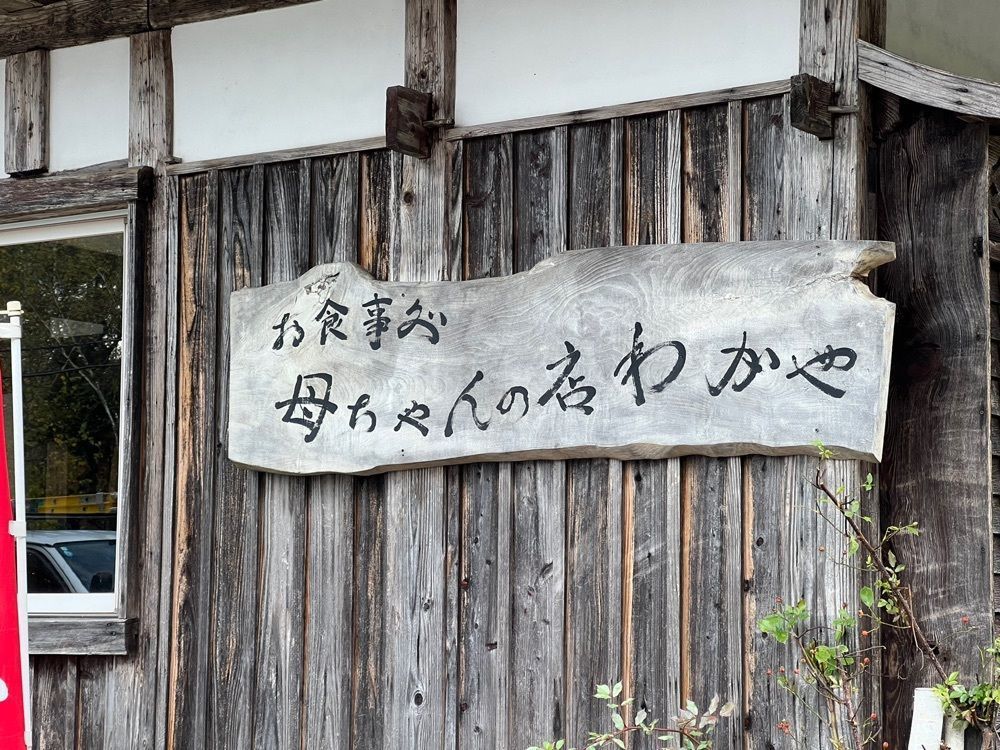 お食事処
母ちゃんの店わかや